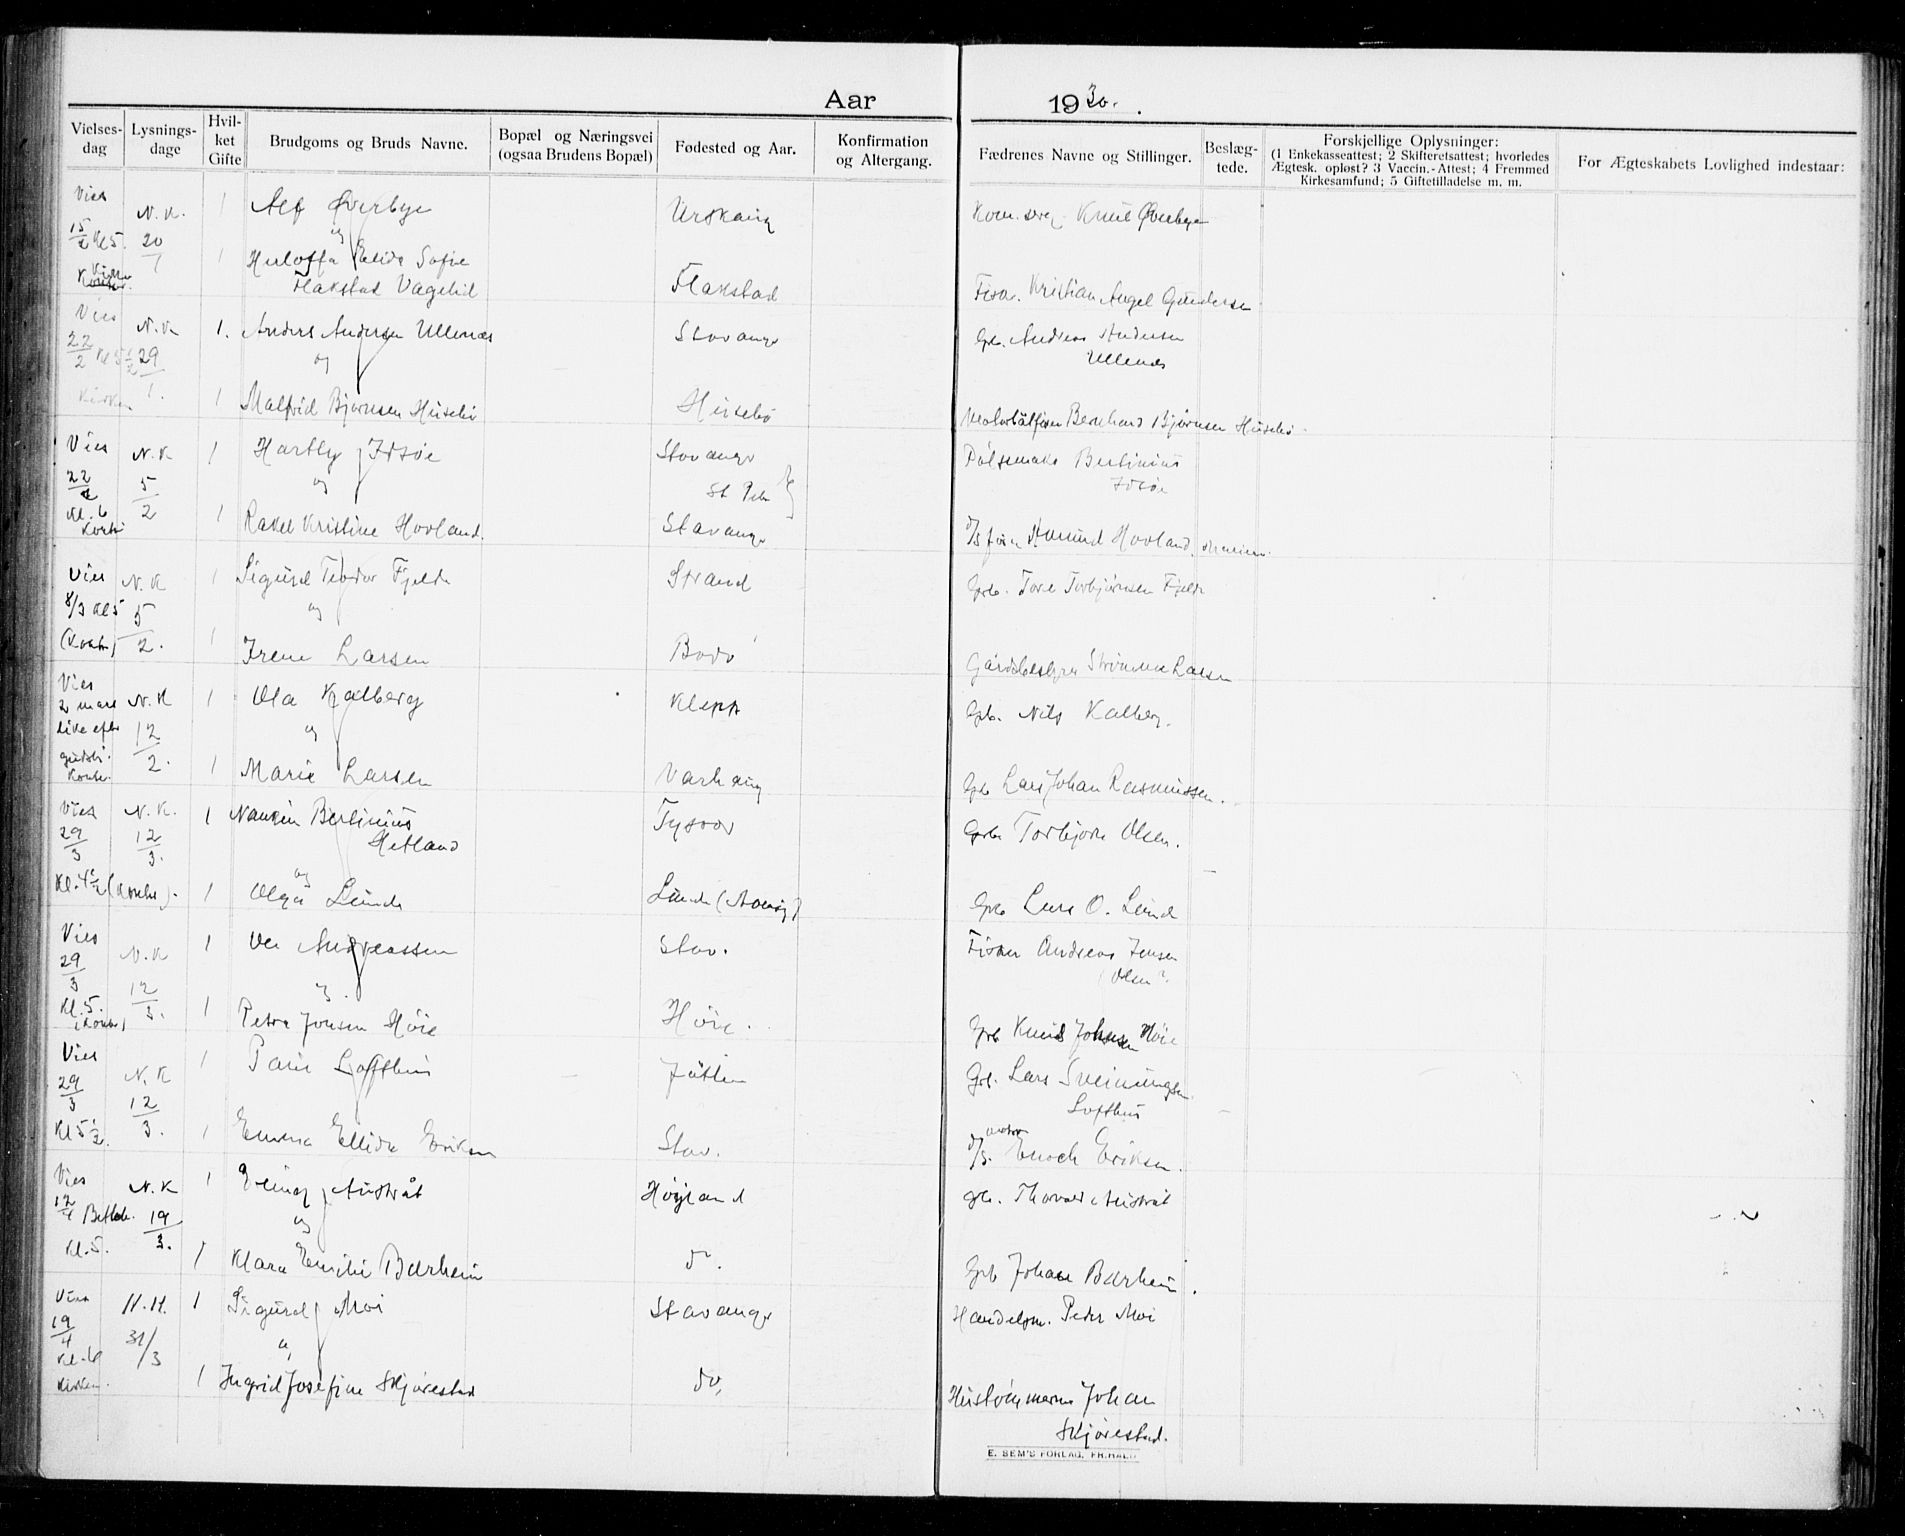 Aar 1930.
Vielses-dag
Lysnings-dage
Hvil-ket Gifte
Brudgoms og Bruds Navne.
Bopæl og Næringsvei (ogsaa Brudens Bopæl)
Fødested og Aar.
Konfirmation og Altergang.
Fædrenes Navne og Stillinger.
Beslæg-tede.
Forskjellige Oplysninger:
(1 Enkekasseattest; 2 Skifteretsattest; hvorledes
Ægtesk. opløst? 3 Vaccin.-Attest; 4 Fremmed
Kirkesamfund; 5 Giftetilladelse m. m.
For Ægteskabets Lovlighed indestaar:
Vies 15/2 Kl 5. N. K. 20/1 1 Alf Øverbye Urskaug Knut Øverbye
og
1 Elida Sofie
Flakstad Vagehil Flakstad Kristian Angel Gundersen
Vies 22/2 Kl 5 1/2 Kirken N. K 29/1. 1. Anders Andersen Ullenæs Stavanger Gb. Andreas Andersen
Ullenæs
og
1 Malfrid Bjørnsen Husebø Husebø Bernhard Bjørnsen Husebø
Vies 22/2 Kl. 6 N. K 5/2 1 Hartly Idsøe Stavanger Pølsemaker Bertinius
Idsøe
og St Petri
1 Rakel Kristine Hovland. Stavanger Amund Hovland
Vies 8/3 Kl 5 N. K 5/2. 1 Sigurd Teodor Fjelde Strand Grb. Tore Torbjørnsen Fjelde
og
1 Irene Larsen Bodø Gårdsbestyrer Larsen
Vies 2 mars Like efter N. K 12/2. 1 Ola Kalberg Klepp Gb. Nils Kalberg.
og
1 Marie Larsen Varhaug Gb Lars Johan Rasmussen.
Vies 29/3 Kl. 4 1/2 N. K. 12/3. 1 Bertinius
Hetland Tysvær Grb Torbjørn Olsen.
og
1 Olga Lunde Lunde Grb Lars O. Lunde
Vies 29/3 Kl. 5. N. K 12/3. 1 Andreassen Stav. Fisker Andreas Jensen
(Olsen?
og
1 Petra Jonsen Høie Høie. Grb Knud Høie
Vies 29/3 Kl 5 1/2. N. K 12/3. 1 Lofthus Grb. Lars Sveinungsen
Lofthus
1 Emma Ellida Eriksen Stav. Enoch Eriksen.
Vies 12/4 Kl. 5. N. K 19/3. 1 Austråt Høyland gb. Thorvald Austråt
og
1 Klara Emilie Barheim do. Grb Johan Barheim.
Vies 19/4 Kl. 6 Kirken. 31/3 1 Sigurd Moi Stavanger Handelsm. Peder Moi
og
1 Ingrid Josefine Skjørestad do, Hustømmerm Johan
Skjørestad.
E. SEM'S FORLAG, FR.HALD